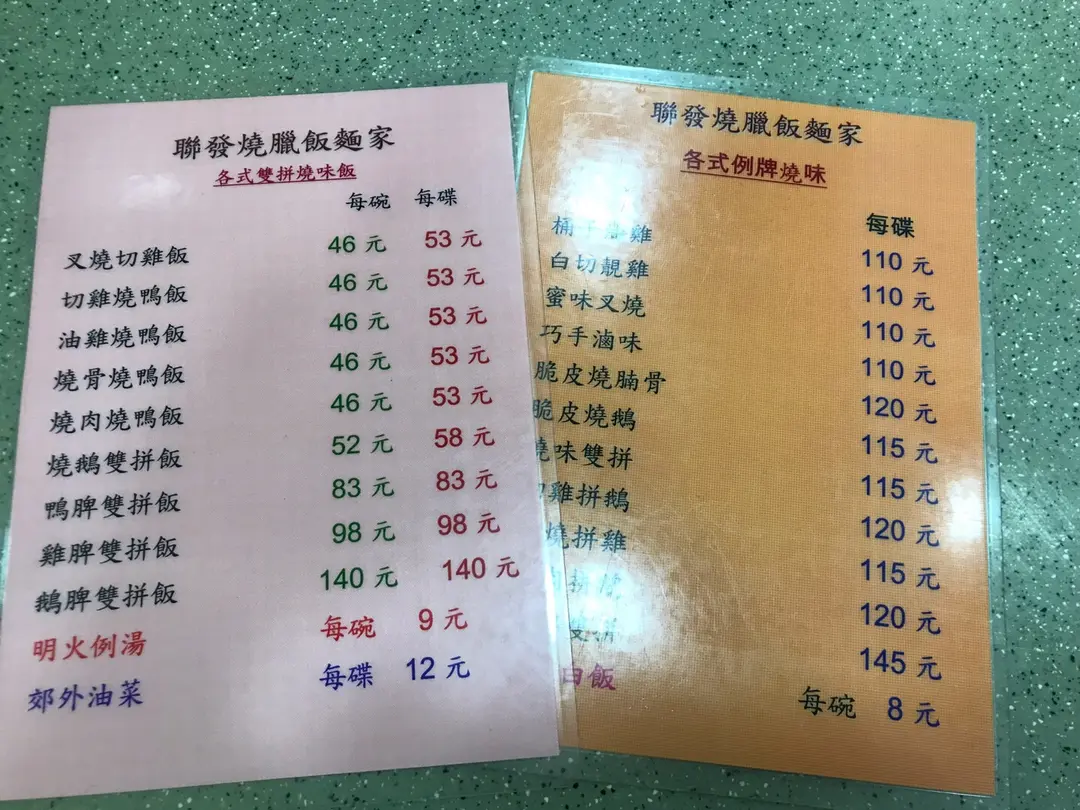 聯發燒臘飯麵家
各式雙拼燒味飯
每碗 每碟
叉燒切雞飯 46 元 53 元
切雞燒鴨飯 46 元 53 元
油雞燒鴨飯 46 元 53 元
燒骨燒鴨飯 46 元 53 元
燒肉燒鴨飯 46 元 53 元
燒鵝雙拼飯 52 元 58 元
鴨脾雙拼飯 83 元 83 元
雞脾雙拼飯 98 元 98 元
鵝脾雙拼飯 140 元 140 元
明火例湯 每碗 9 元
郊外油菜 每碟 12 元
聯發燒臘飯麵家
各式例牌燒味
每碟
桶子油雞 110 元
白切靚雞 110 元
蜜味叉燒 110 元
巧手滷味 110 元
脆皮燒腩骨 120 元
脆皮燒鵝 115 元
燒味雙拼 115 元
雞拼鵝 120 元
燒拼雞 115 元
120 元
145 元
白飯 每碗 8 元